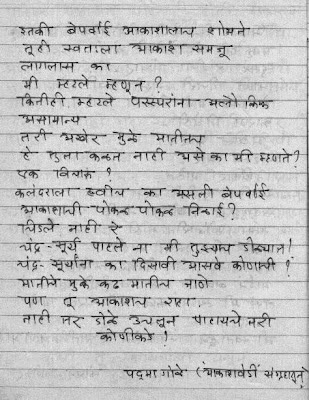 इतकी बेपर्वाई आकाशालाच शोभते
तूही स्वतःला आकाश समजू
लागलास का
मी म्हटले म्हणून ?
कितीही म्हटले परस्परांना अलौकिक
असामान्य
तरी अखेर मुळे मातीतच
हे तुला कळत नाही असे का मी म्हणते?
एक विचारू ?
कलंदराला हवीच का असली बेपर्वाई
आकाशाची पोकळ पोकळ निळाई ?
चिडले नाही रे
चंद्र-सूर्य पाहले ना मी तुझ्याच डोळ्यात!
चंद्र-सूर्यांना का दिसावी आसवे कोणाची !
मातीचे मुके कढ मातीच जाणे
पण तू आकाशच रहा
नाही तर डोळे उचलून पाहायचे तरी
कोणीकडे !
पद्मा गोळे (आकाशवेडी संग्रहातून)